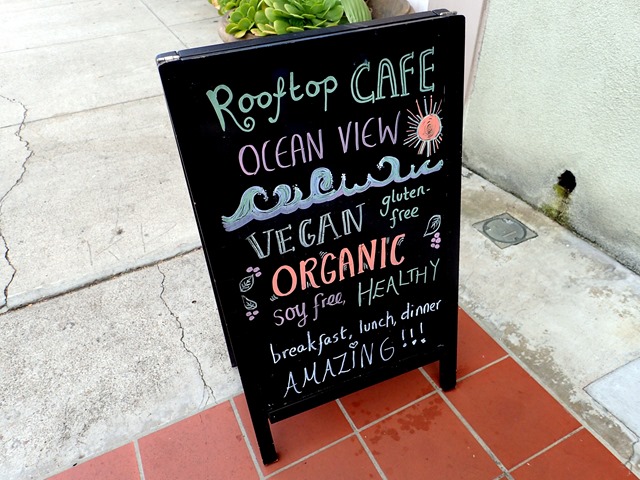 Rooftop CAFE
OCEAN VIEW
VEGAN gluten-
free
ORGANIC
soy free, HEALTHY
breakfast, lunch, dinner
AMAZING!!!